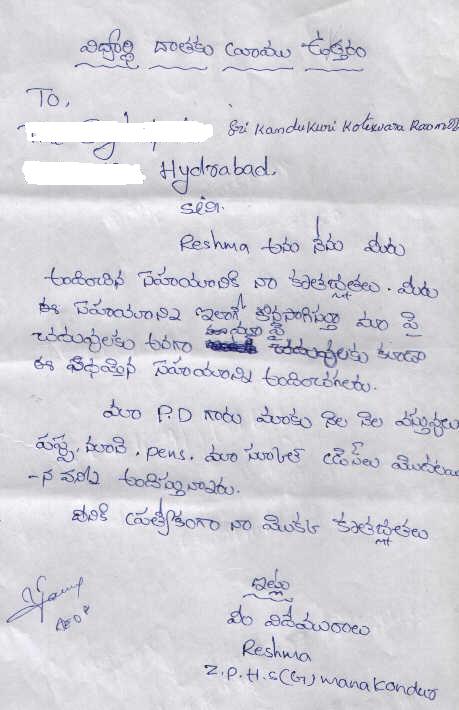 విద్యార్ధి దాతకు వ్రాయు ఉత్తరం
To,
Sri Kandukuri Koteswara Rao
Hyderabad.
Reshma అను నేను మీరు
అందించిన సహాయానికి నా కృతజ్ఞతలు. మీరు
ఈ సహాయాన్ని ఇలాగే కొనసాగిస్తూ మా పై
చదువులకు కూడా
ఈ విధమైన సహాయాన్ని అందించగలరు.
మా P.D గారు మాకు నెల నెల వస్తువులు
pens. మా డ్రెస్‌లు మొదలయి
-న వన్ని అందిస్తున్నారు.
దీనికి ప్రత్యేకంగా నా కృతజ్ఞతలు
ఇట్లు
మీ విదేయురాలు
Reshma
Z.P.H.S(G) manakondur